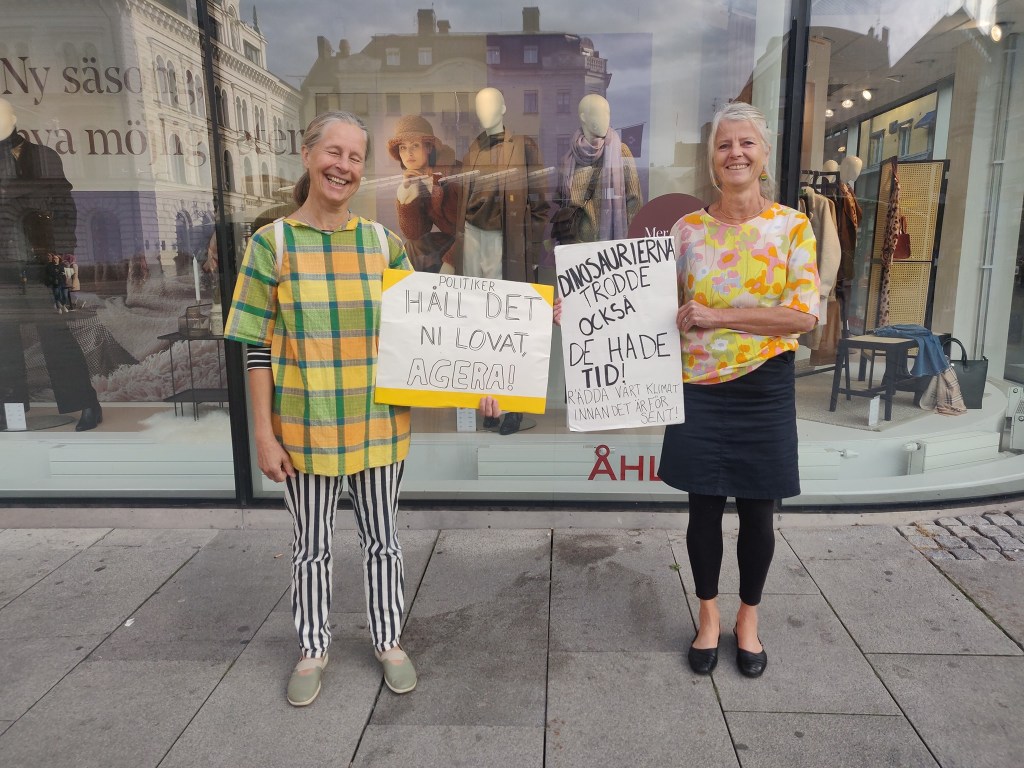 Ny säsong
nya möjligheter
Mer
POLITIKER
HÅLL DET
NI LOVAT,
AGERA!
DINOSAURIERNA
TRODDE
OCKSÅ
DE HADE
TID!
RÄDDA VÅRT KLIMAT
INNAN DET ÄR FÖR
SENT!
ÅHL